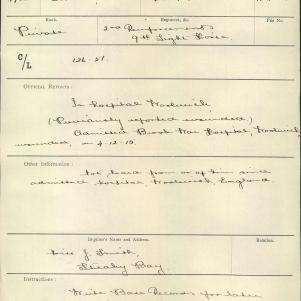 Rank. Regimental, &c. File No.
Private 2nd Reinforcements
9th Light Horse.
C/L 126.51.
OFFICIAL REPORTS:
In hospital Woolwich
(Previously reported wounded)
Admitted Brook War Hospital, Woolwich,
wounded, 4-12-15.
Other Information:
heard from or of him since
admitted hospital, Woolwich, England.
Inquirer's Name and Address. Relation.
Miss J. Smith,
Bay.
Instructions:
Write Base Records for later